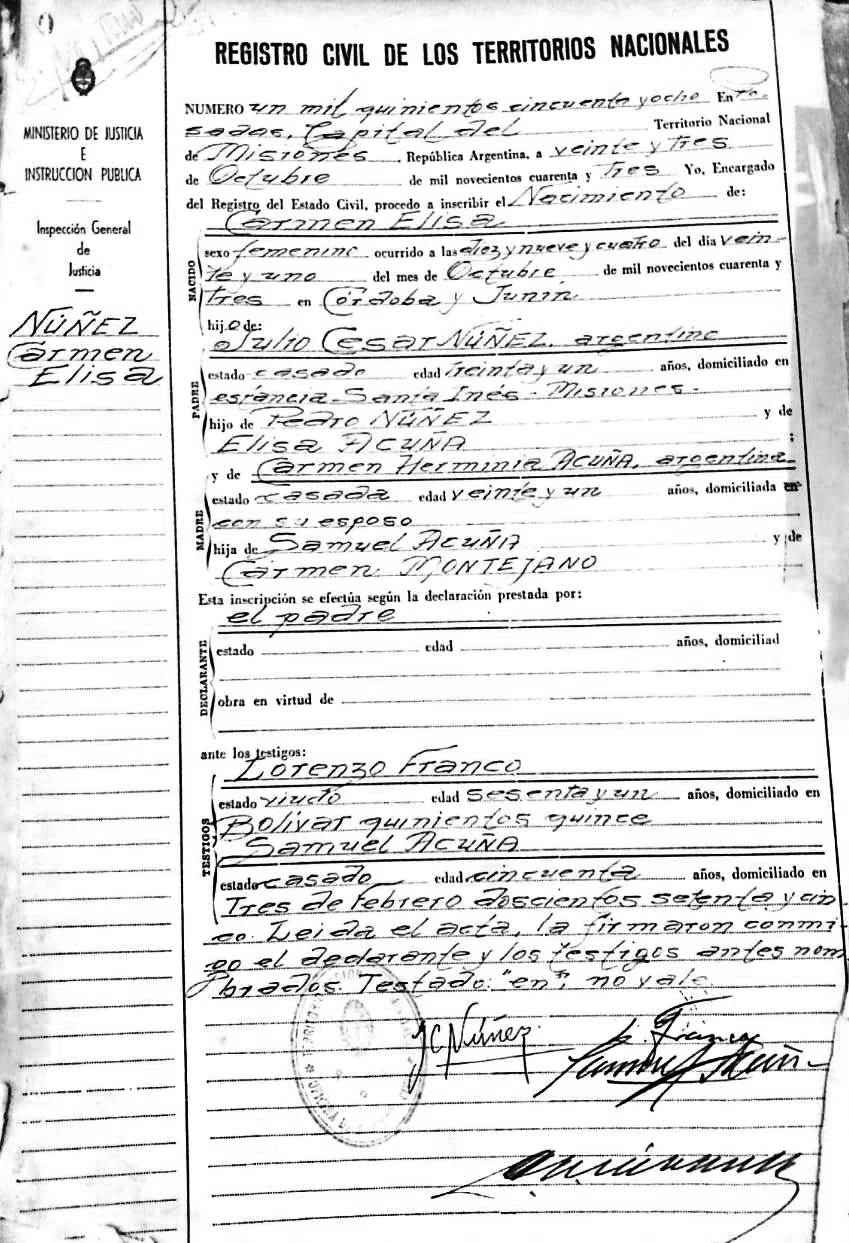 REGISTRO CIVIL DE LOS TERRITORIOS NACIONALES
MINISTERIO DE JUSTICIA
E
INSTRUCCION PUBLICA
Inspección General
de
Justicia
NÚÑEZ
Carmen
Elisa
NUMERO un mil quinientos cincuenta y ocho En Po-
sadas, Capital del Territorio Nacional
de Misiones, República Argentina, a veinte y tres
de Octubre de mil novecientos cuarenta y Tres Yo, Encargado
del Registro del Estado Civil, procedo a inscribir el Nacimiento de:
Carmen Elisa
NACIDO
sexo femenino ocurrido a las diez y nueve y cuatro del día vein-
te y uno del mes de Octubre de mil novecientos cuarenta y
tres en Córdoba y Junín
hija de:
Julio Cesar NÚÑEZ, argentino
PADRE
estado casado edad treinta y un años, domiciliado en
estancia - Santa Inés - Misiones -
hijo de Pedro NÚÑEZ y de
Elisa ACUÑA ;
y de Carmen Herminia ACUÑA, argentina
MADRE
estado casada edad veinte y un años, domiciliada en
con su esposo
hija de Samuel ACUÑA y de
Carmen MONTEJANO
Esta inscripción se efectúa según la declaración prestada por:
el padre
DECLARANTE
estado edad años, domiciliad
obra en virtud de
ante los testigos:
Lorenzo Franco
TESTIGOS
estado viudo edad sesenta y un años, domiciliado en
Bolívar quinientos quince
Samuel ACUÑA
estado casado edad cincuenta años, domiciliado en
Tres de Febrero doscientos setenta y cin
co. Leida el acta, la firmaron conmi-
go el declarante y los testigos antes nom
brados. Testado: "en", no vale
JC Núñez
L. Franco